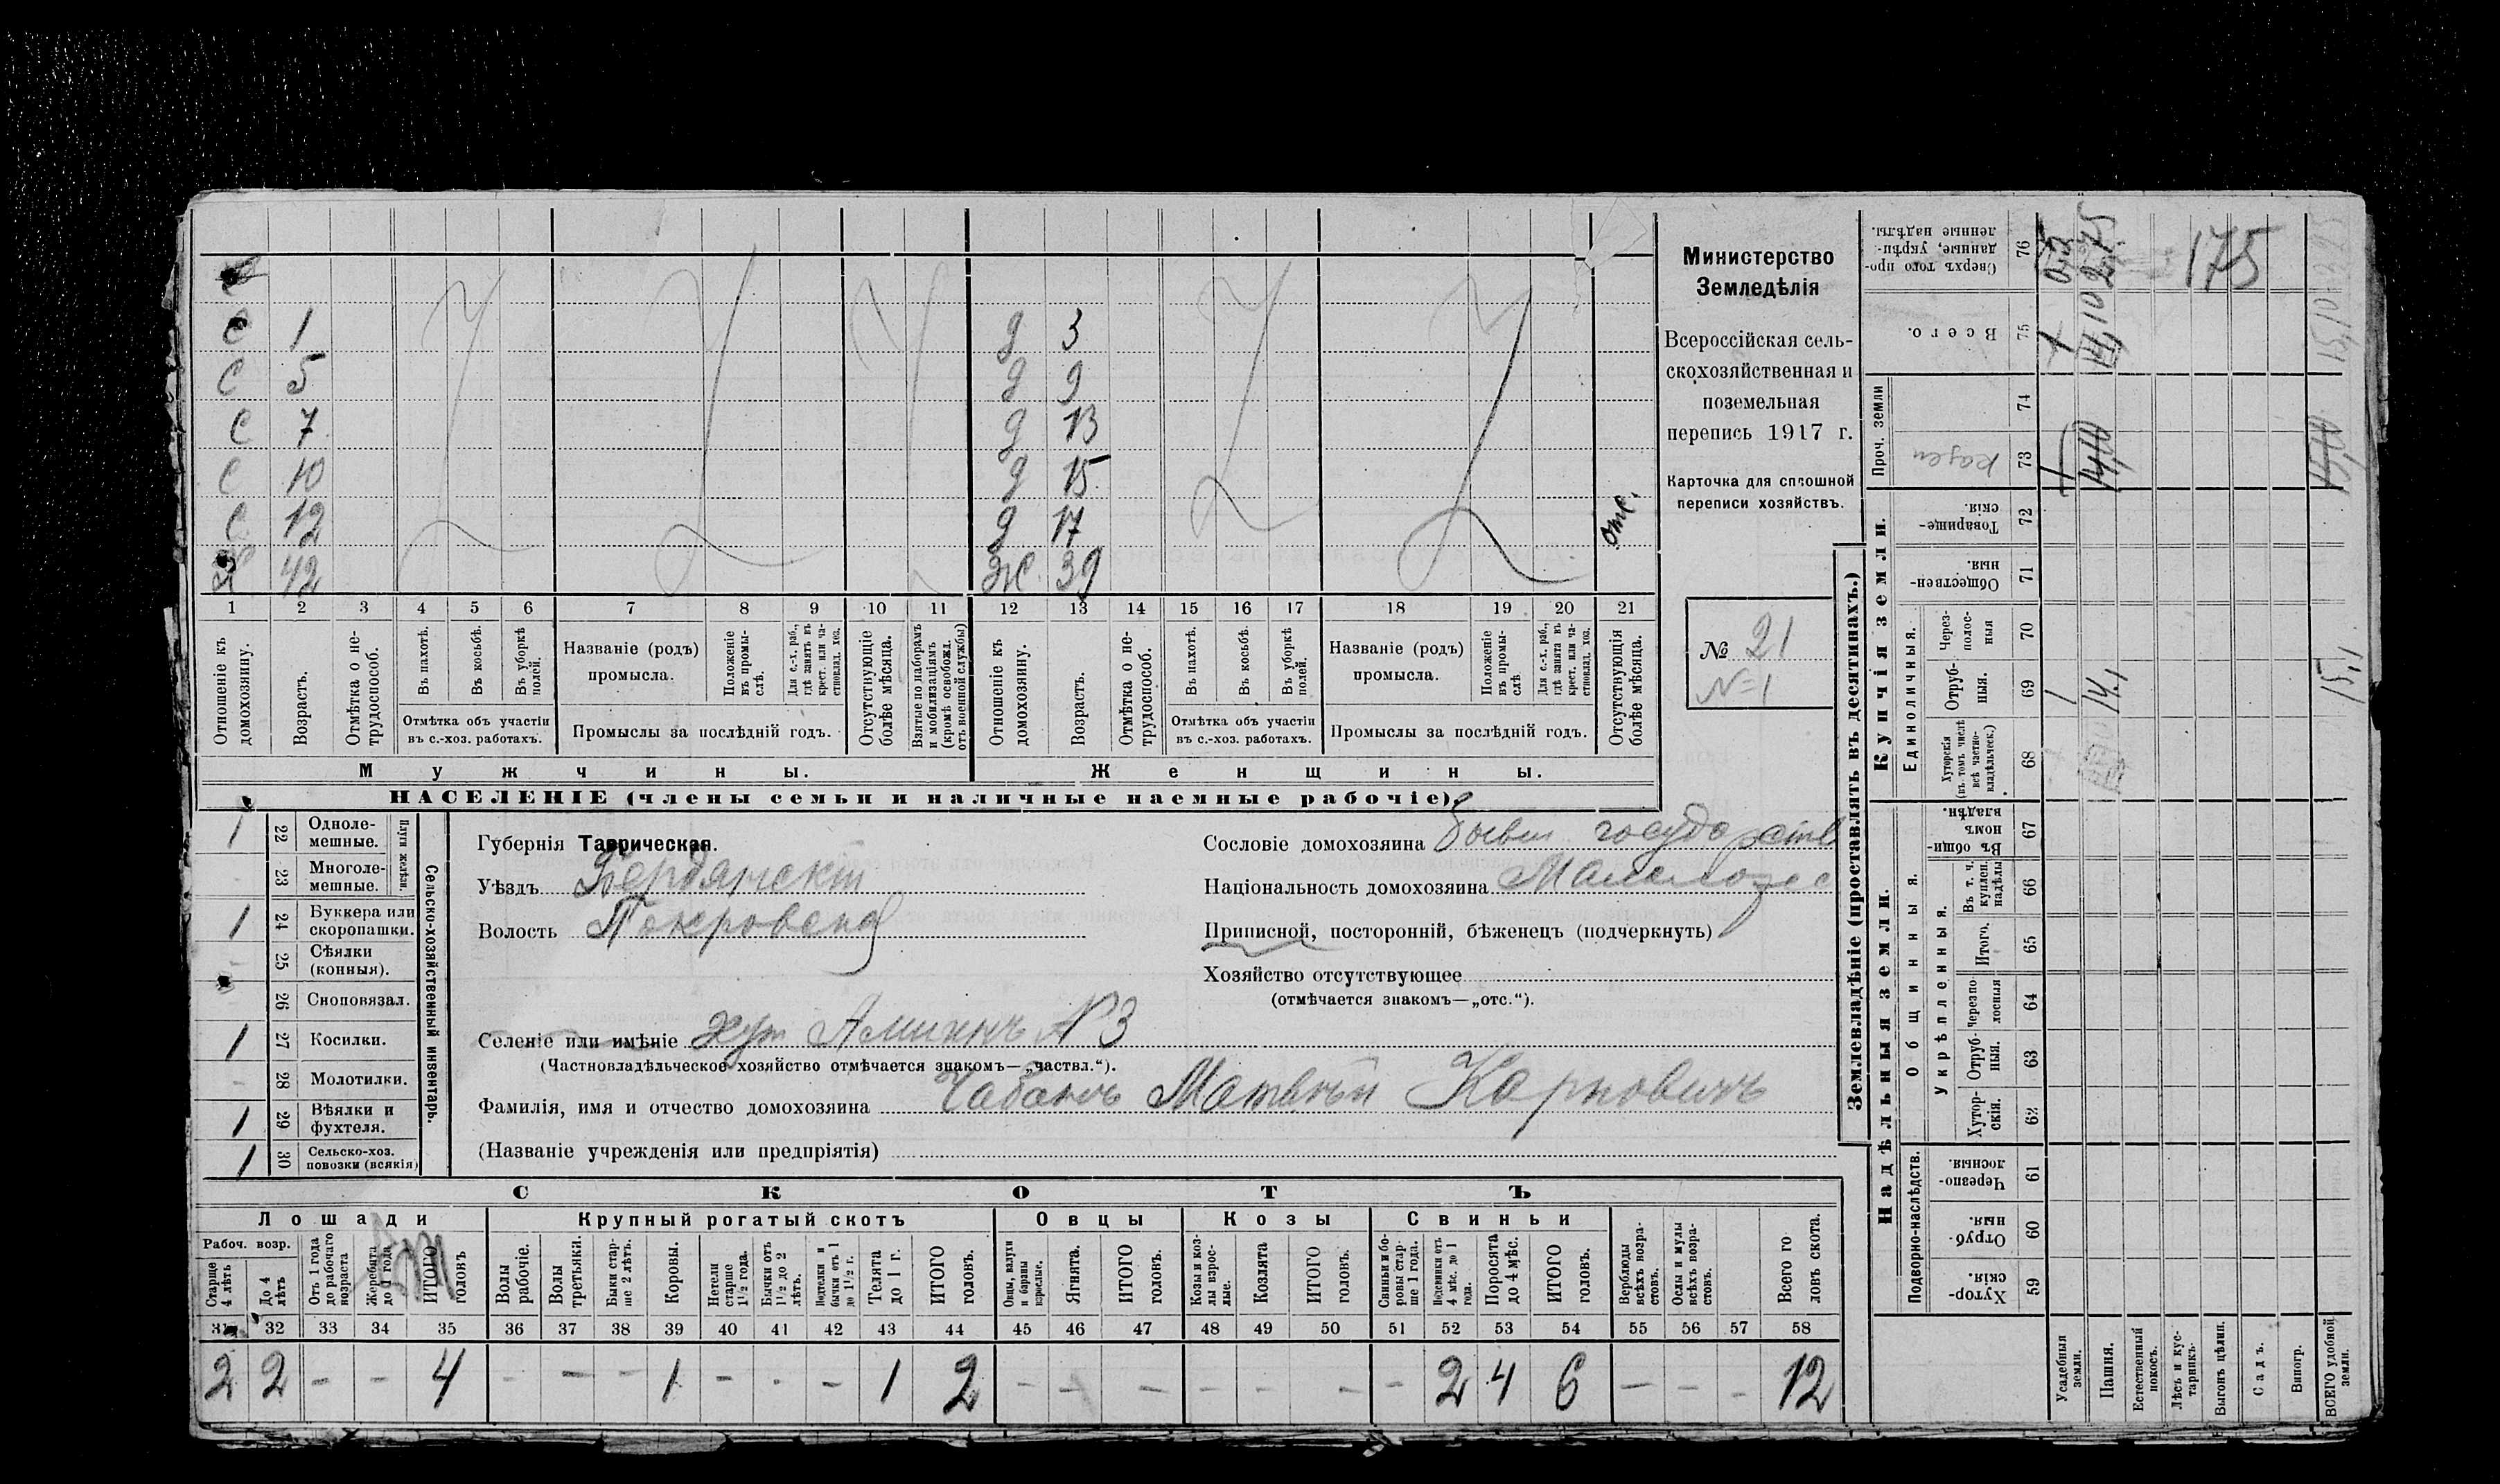 С 1 д 3
С 5 д 9
С 7 д 13
С 10 д 15
С 12 д 17 отс.
Х 42 Ж 39
1 2 3 4 5 6 7 8 9 10 11 12 13 14 15 16 17 18 19 20 21
Отношеніе къ домохозяину.
Возрастъ.
Отмѣтка о нетрудоспособ.
Въ пахотѣ.
Въ косьбѣ.
Въ уборкѣ полей.
Отмѣтка объ участіи
въ с.-хоз. работахъ.
Названіе (родъ)
промысла.
Положеніе въ промыслѣ.
Для с.-х. раб., гдѣ занятъ въ крест. или частновлад. хоз.
Промыслы за послѣдній годъ.
Отсутствующіе болѣе мѣсяца.
Взятые по наборамъ и мобилизаціямъ (кромѣ освобожд. отъ военной службы)
Отношеніе къ домохозяину.
Возрастъ.
Отмѣтка о нетрудоспособ.
Въ пахотѣ.
Въ косьбѣ.
Въ уборкѣ полей.
Отмѣтка объ участіи
въ с.-хоз. работахъ.
Названіе (родъ)
промысла.
Положеніе въ промыслѣ
Для с.-х. раб., гдѣ занята въ крест. или частновлад. хоз.
Промыслы за послѣдній годъ.
Отсутствующія болѣе мѣсяца.
Мужчины.
Женщины.
НАСЕЛЕНІЕ (члены семьи и наличные наемные рабочіе)
Министерство
Земледѣлія
Всероссійская сель-
скохозяйственная и
поземельная
перепись 1917 г.
Карточка для сплошной
переписи хозяйствъ.
№ 21
N=1
1 22 Одноле-
мешные.
23 Многоле-
мешные.
Плуги желѣзн.
1 24 Буккера или
скоропашки.
25 Сѣялки
(конныя).
26 Сноповязал.
1 27 Косилки.
28 Молотилки.
1 29 Вѣялки и
фухтеля.
1 30 Сельско-хоз.
повозки (всякія)
Сельско-хозяйственный инвентарь.
Губернія Таврическая.
Уѣздъ Бердянскій
Волость Покровская
Сословіе домохозяина бывш. государств
Національность домохозяина Малоросс
Приписной, посторонній, бѣженецъ (подчеркнуть)
Хозяйство отсутствующее
(отмѣчается знакомъ—„отс.“).
Селеніе или имѣніе хут N 3
(Частновладѣльческое хозяйство отмѣчается знакомъ—„частвл.“).
Фамилія, имя и отчество домохозяина Чабанъ Матвѣй Карповичъ
(Названіе учрежденія или предпріятія)
СКОТЪ
Лошади
Рабоч. возр.
Старше 4 лѣтъ
До 4 лѣтъ
Отъ 1 года до рабочаго возраста
Жеребята до 1 года
ИТОГО головъ
Крупный рогатый скотъ
Волы рабочіе.
Волы третьяки.
Быки старше 2 лѣтъ.
Коровы.
Нетели старше 1½ года.
Бычки отъ 1½ до 2 лѣтъ.
Подтелки и бычки отъ 1 до 1½ г.
Телята до 1 г.
ИТОГО головъ.
Овцы
Овцы, валухи и бараны взрослые.
Ягнята.
ИТОГО головъ.
Козы
Козы и козлы взрослые.
Козлята
ИТОГО головъ.
Свиньи
Свиньи и боровы старше 1 года.
Подсвинки отъ 4 мѣс. до 1 года.
Поросята до 4 мѣс.
ИТОГО головъ.
Верблюды всѣхъ возрастовъ.
Ослы и мулы всѣхъ возрастовъ.
Всего головъ скота.
31 32 33 34 35 36 37 38 39 40 41 42 43 44 45 46 47 48 49 50 51 52 53 54 55 56 57 58
2 2 - - 4 - - - 1 - - - 1 2 - - - - - - - 2 4 6 - - - 12
Землевладѣніе (проставлять въ десятинахъ.)
Купчія земли.
Надѣльныя земли.
Сверхъ того проданные, укрѣпленные надѣлы. 76
Всего. 75
Проч. земли
74
казен 73
Товарищескія. 72
Общественныя. 71
Единоличныя.
Черезполосныя 70
Отрубныя. 69
Хуторскія (въ томъ числѣ всѣ частновладѣльческ.) 68
Общинныя.
Въ общинномъ владѣн. 67
Укрѣпленныя.
Въ т. ч. куплен. надѣлы 66
Итого. 65
Черезполосныя 64
Отрубныя. 63
Хуторскія. 62
Подворно-наслѣдств.
Черезполосныя 61
Отрубныя. 60
Хуторскія. 59
175
1
14,1
15,1
Усадебныя земли.
Пашня.
Естественный покосъ.
Лѣсъ и кустарникъ.
Выгонъ цѣлин.
Садъ.
Виногр.
ВСЕГО удобной земли.